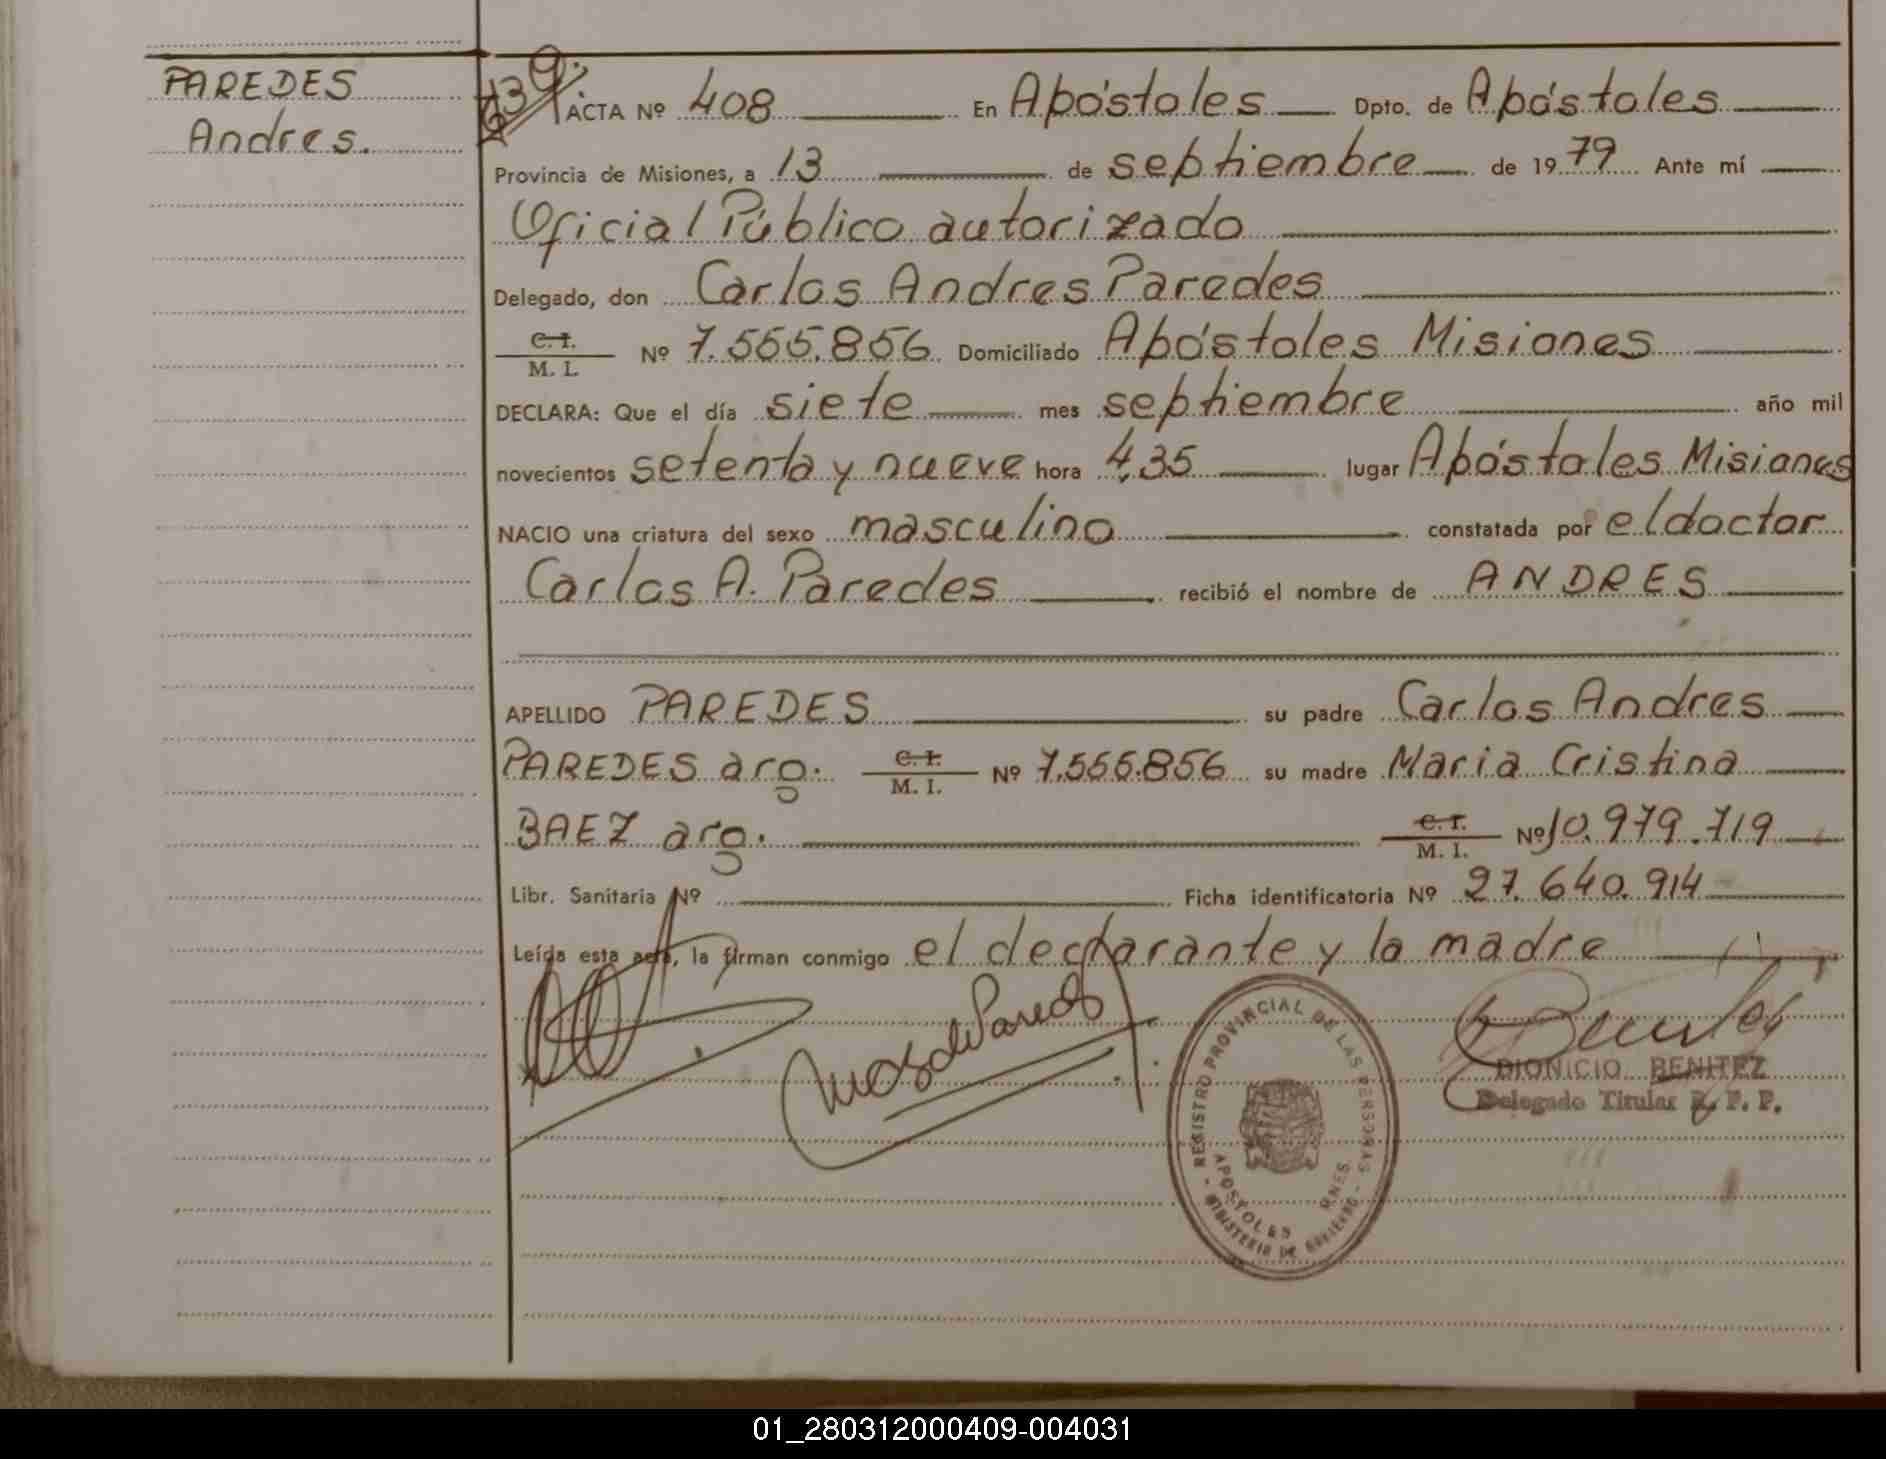 PAREDES
Andres.
639.
ACTA Nº 408 En Apóstoles Dpto. de Apóstoles
Provincia de Misiones, a 13 de septiembre de 1979 Ante mí
Oficial Público autorizado
Delegado, don Carlos Andres Paredes
C. I.
M. I. Nº 7.555.856 Domiciliado Apóstoles Misiones
DECLARA: Que el día siete mes septiembre año mil
novecientos setenta y nueve hora 4,35 lugar Apóstoles Misiones
NACIO una criatura del sexo masculino constatada por el doctor
Carlos A. Paredes recibió el nombre de ANDRES
APELLIDO PAREDES su padre Carlos Andres
PAREDES arg. C. I. M. I. Nº 7.555.856 su madre Maria Cristina
BAEZ arg. C. I. M. I. Nº 10.979.719
Libr. Sanitaria Nº Ficha identificatoria Nº 27.640.914
Leída esta acta, la firman conmigo el declarante y la madre
de Paredes
REGISTRO PROVINCIAL DE LAS PERSONAS
APOSTOLES MNES.
- MINISTERIO DE GOBIERNO -
DIONICIO BENITEZ
Delegado Titular R. P. P.
01_280312000409-004031